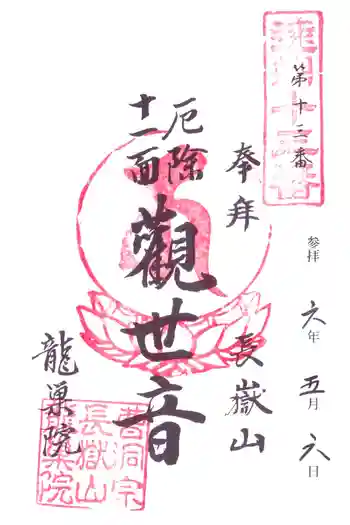 第十三番
参拝 六年 五月 六日
奉拜
長嶽山
厄除
十一面
觀世音
龍巣院
曹洞宗
長嶽山
龍巣院